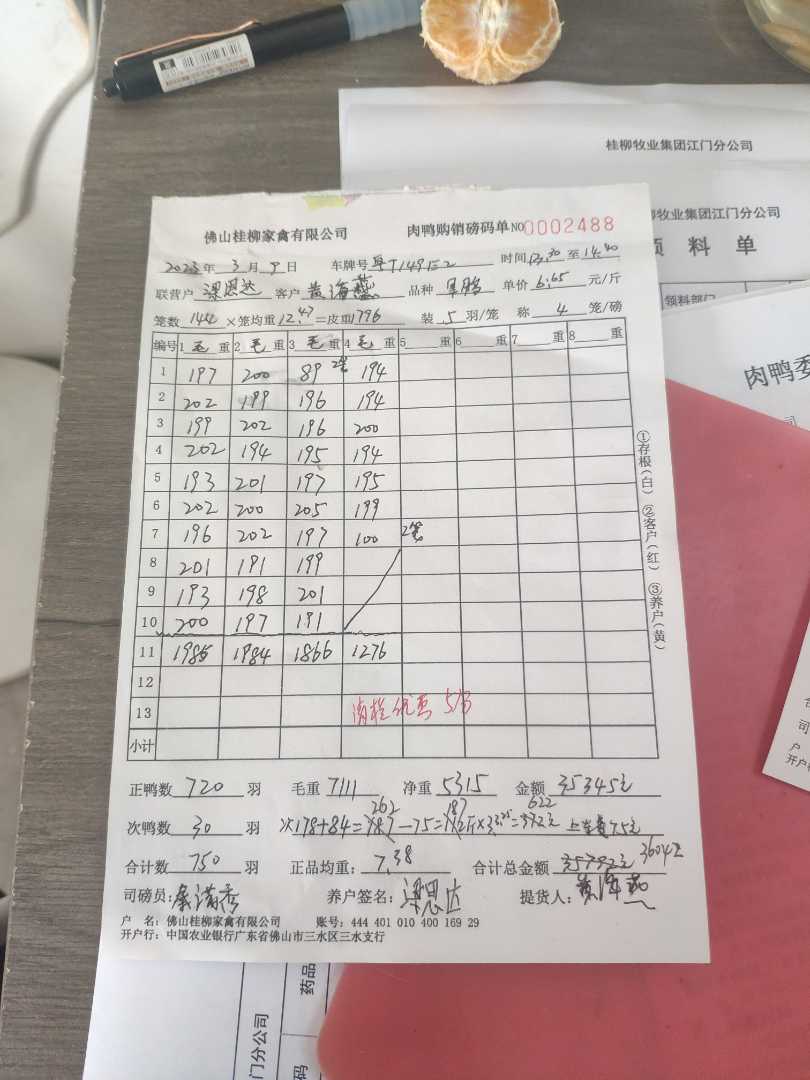 桂柳牧业集团江门分公司
柳牧业集团江门分公司
领料单
领料部门
肉鸭委
佛山桂柳家禽有限公司 肉鸭购销磅码单 NO0002488
2023年3月9日 车牌号 粤T149E2 时间 13:30 至 14:40
联营户 梁恩达 客户 黄海燕 品种 单价 6.65 元/斤
笼数 144 ×笼均重 12.47 =皮重1796 装 5 羽/笼 称 4 笼/磅
编号 1 毛 重 2 毛 重 3 毛 重 4 毛 重 5 重 6 重 7 重 8 重
1 197 200 89 2笼 194
2 202 199 196 194
3 199 202 196 200
4 202 194 195 194
5 193 201 197 195
6 202 200 205 199
7 196 202 197 100 2笼
8 201 191 199
9 193 198 201
10 200 197 191
11 1985 1984 1866 1276
12
13 优惠 5/B
小计
①存根(白) ②客户(红) ③养户(黄)
正鸭数 720 羽 毛重 7111 净重 5315 金额 35345元
262 187 622
次鸭数 30 羽 次178+84= -75= =372元 上车费75元
合计数 750 羽 正品均重: 7.38 合计总金额 35792元 36042
司磅员: 养户签名: 梁恩达 提货人: 黄海燕
户 名: 佛山桂柳家禽有限公司 账号: 444 401 010 400 169 29
开户行: 中国农业银行广东省佛山市三水区三水支行
门分公司
药品